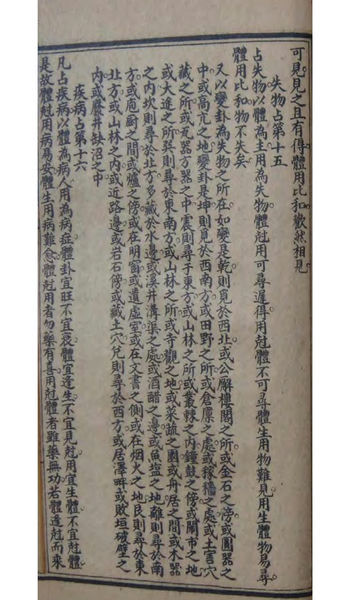 可見見之且有得體用比和歡然相見
失物占第十五
占失物以體為主用為失物體尅用可尋遲得用尅體不可尋體生用物難見用生體物易尋
體用比和物不失矣
又以變卦為失物之所在如變是乾則覓於西北或公廨樓閣之所或金石之傍或圓器之
中或高亢之地變卦是坤則覓於西南方或田野之所或倉廩之處或稼穡之處或土窖穴
藏之所或瓦器方器之中震則尋于東方或山林之所或叢棘之內鐘鼓之傍或鬧市之地
或大途之所巽則尋於東南方或山林之所或寺觀之地或菜蔬之園或舟居之間或木器
之內坎則尋於北方多藏於水邊或溪井溝渠之處或酒醋之邊或魚塩之地離則尋於南
方或庖廚之間或爐之傍或在明窗或遺虛室或在文書之側或在烟火之地艮則尋於東
北方或山林之內或近路邊或若石傍或藏土穴兌則尋於西方或居澤畔或敗垣破壁之
內或廢井缺沼之中
疾病占第十六
凡占疾病以體為病人用為病症體卦宜旺不宜衰體宜逢生不宜見尅用宜生體不宜尅體
是故體尅用病易安體生用病難愈體尅用者勿藥有喜用尅體者雖藥無功若體逢尅而來